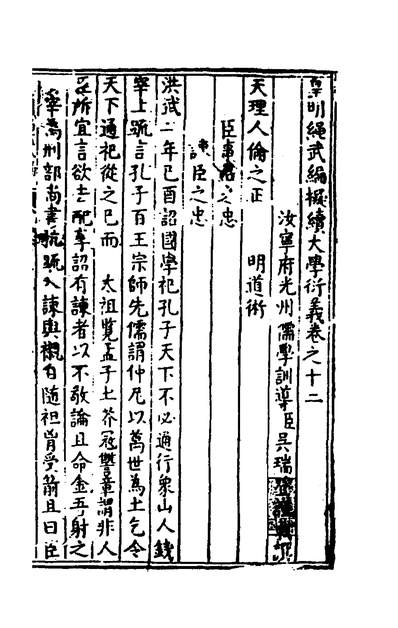 皇明繩武編擬續大學衍義卷之十二
汝寧府光州儒學訓導臣吳瑞登
天理人倫之正　明道術
臣事君之忠
臣之忠
洪武二年己酉詔國學祀孔子天下不必通行象山人錢
宰上疏言孔子百王宗師先儒謂仲尼以萬世為土乞令
天下通祀從之已而　太祖覽孟子土芥寇讐章謂非人
臣所宜言欲去配享詔有諫者以不敬論且命金吾射之
宰為刑部尚書抗疏入諫輿櫬自隨袒胷受箭且曰臣